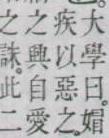 大學曰。媢
疾以惡之。
之興自愛
之誅。此二